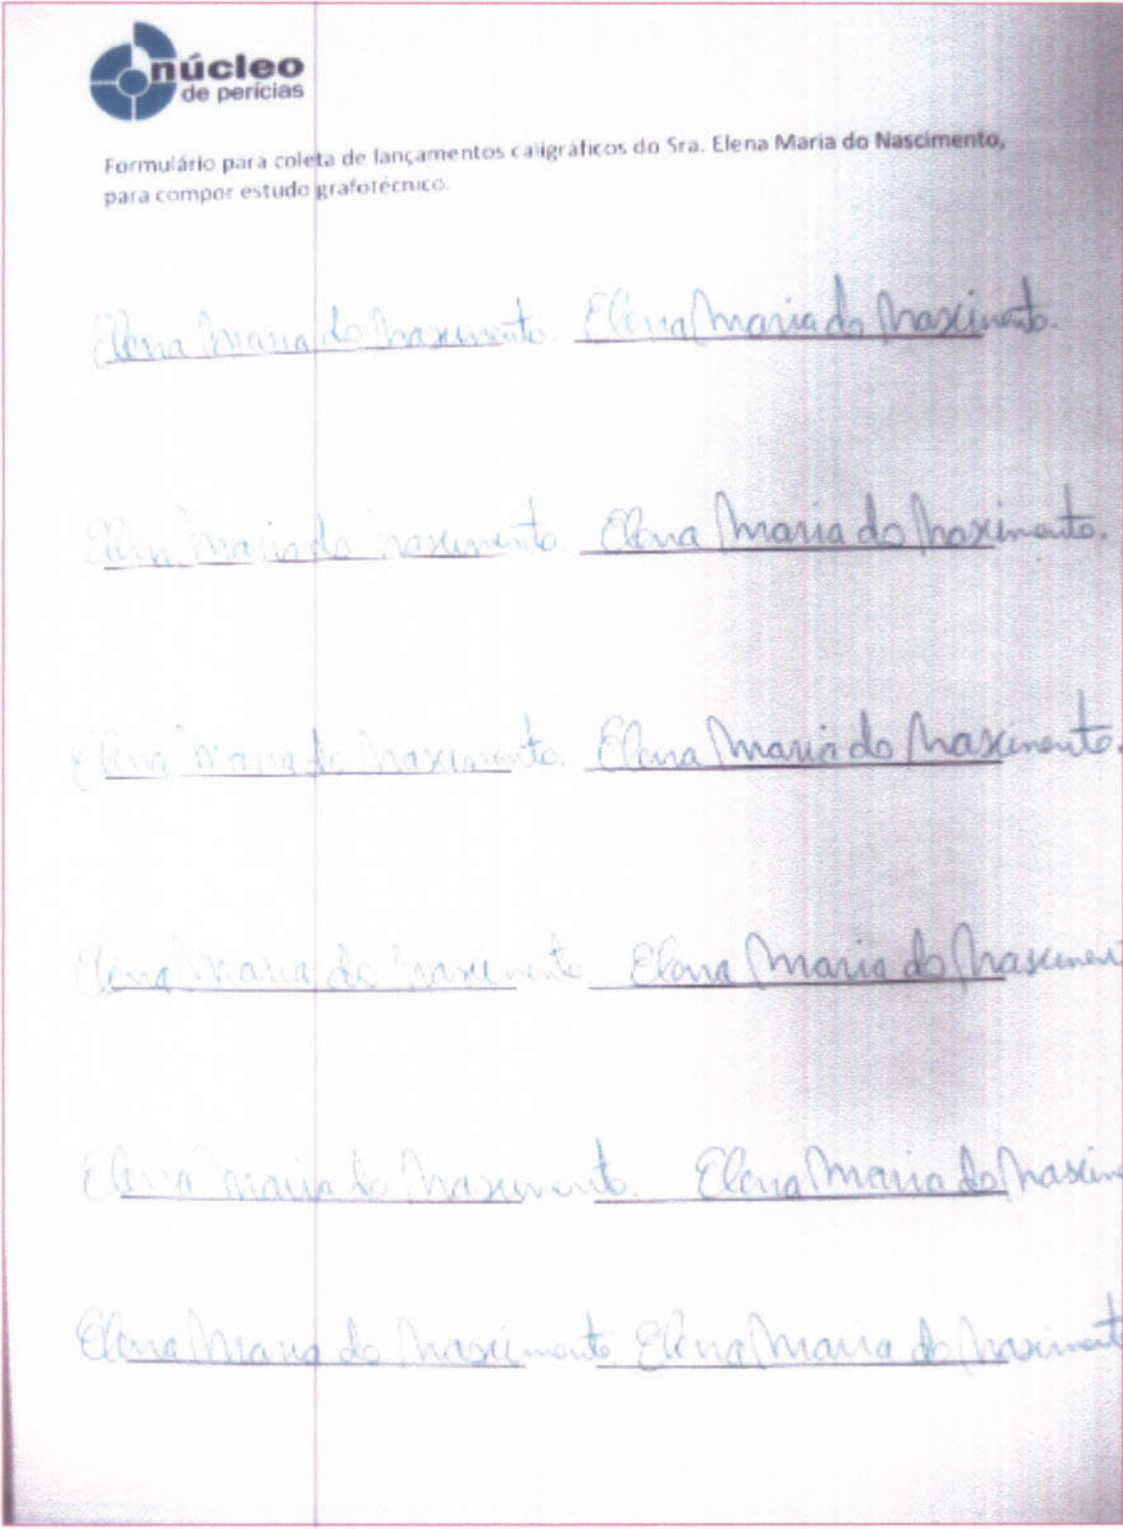 núcleo
de perícias
Formulário para coleta de lançamentos caligráficos do Sra. Elena Maria do Nascimento,
para compor estudo grafotécnico.
Elena Maria do Nascimento. Elena Maria do Nascimento.
Elena Maria do Nascimento. Elena Maria do Nascimento.
Elena Maria do Nascimento. Elena Maria do Nascimento.
Elena Maria do Nascimento Elena Maria do Nascimen
Elena Maria do Nascimento. Elena Maria do Nascim
Elena Maria do Nascimento Elena Maria do Nasciment